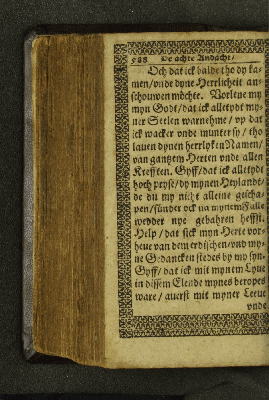 588 De achte Andacht/
Och dat ick balde tho dy ka-
men/vnde dyne Herrlicheit an-
schouwen möchte. Vorlene my
myn Godt/dat ick alletydt my-
ner Seelen warnehme/vp dat
ick wacker vnde munter sy/tho
lauen dynen herrlyken Namen/
van gantzem Herten vnde allen
Krefften. Gyff/dat ick alletydt
hoch pryse/dy mynen Heylandt/
de du my nicht alleine gescha-
pen/sünder ock na mynem Falle
wedder nye gebahren heffst.
Help/dat sick myn Herte vor-
heue van dem erdischen/vnd my-
ne Gedancken stedes by my syn.
Gyff/dat ick mit mynem Lyue
in dissem Elende mynes beropes
ware/auerst mit myner Leeue
vnde